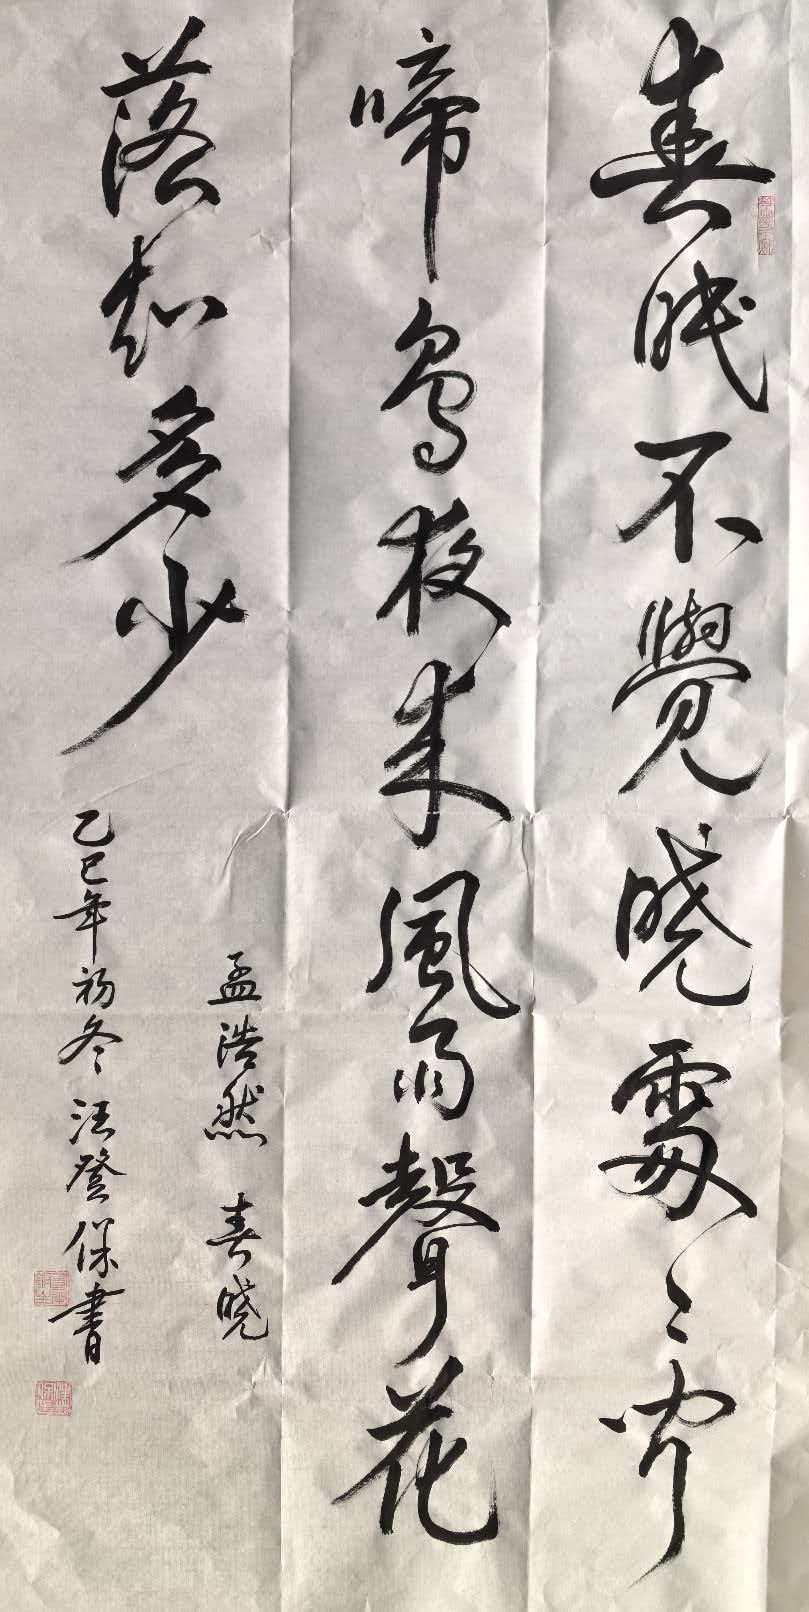 春眠不覺曉處々聞
啼鳥夜来風雨聲花
落知多少
孟浩然 春曉
乙巳年初冬汪登保書